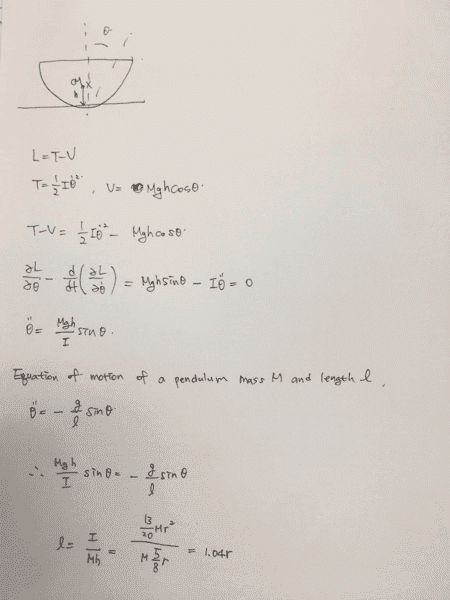 θ
CM
h
L = T-V
T = 1/2 Iθ̇², V = Mghcosθ.
T-V = 1/2 Iθ̇² - Mghcosθ.
∂L/∂θ - d/dt(∂L/∂θ̇) = Mghsinθ - Iθ̈ = 0
θ̈ = Mgh/I sinθ.
Equation of motion of a pendulum mass M and length l,
θ̈ = - g/l sinθ
∴ Mgh/I sinθ = - g/l sinθ
l = I/Mh = (13/20 Mr²)/(M 5/8 r) = 1.04r